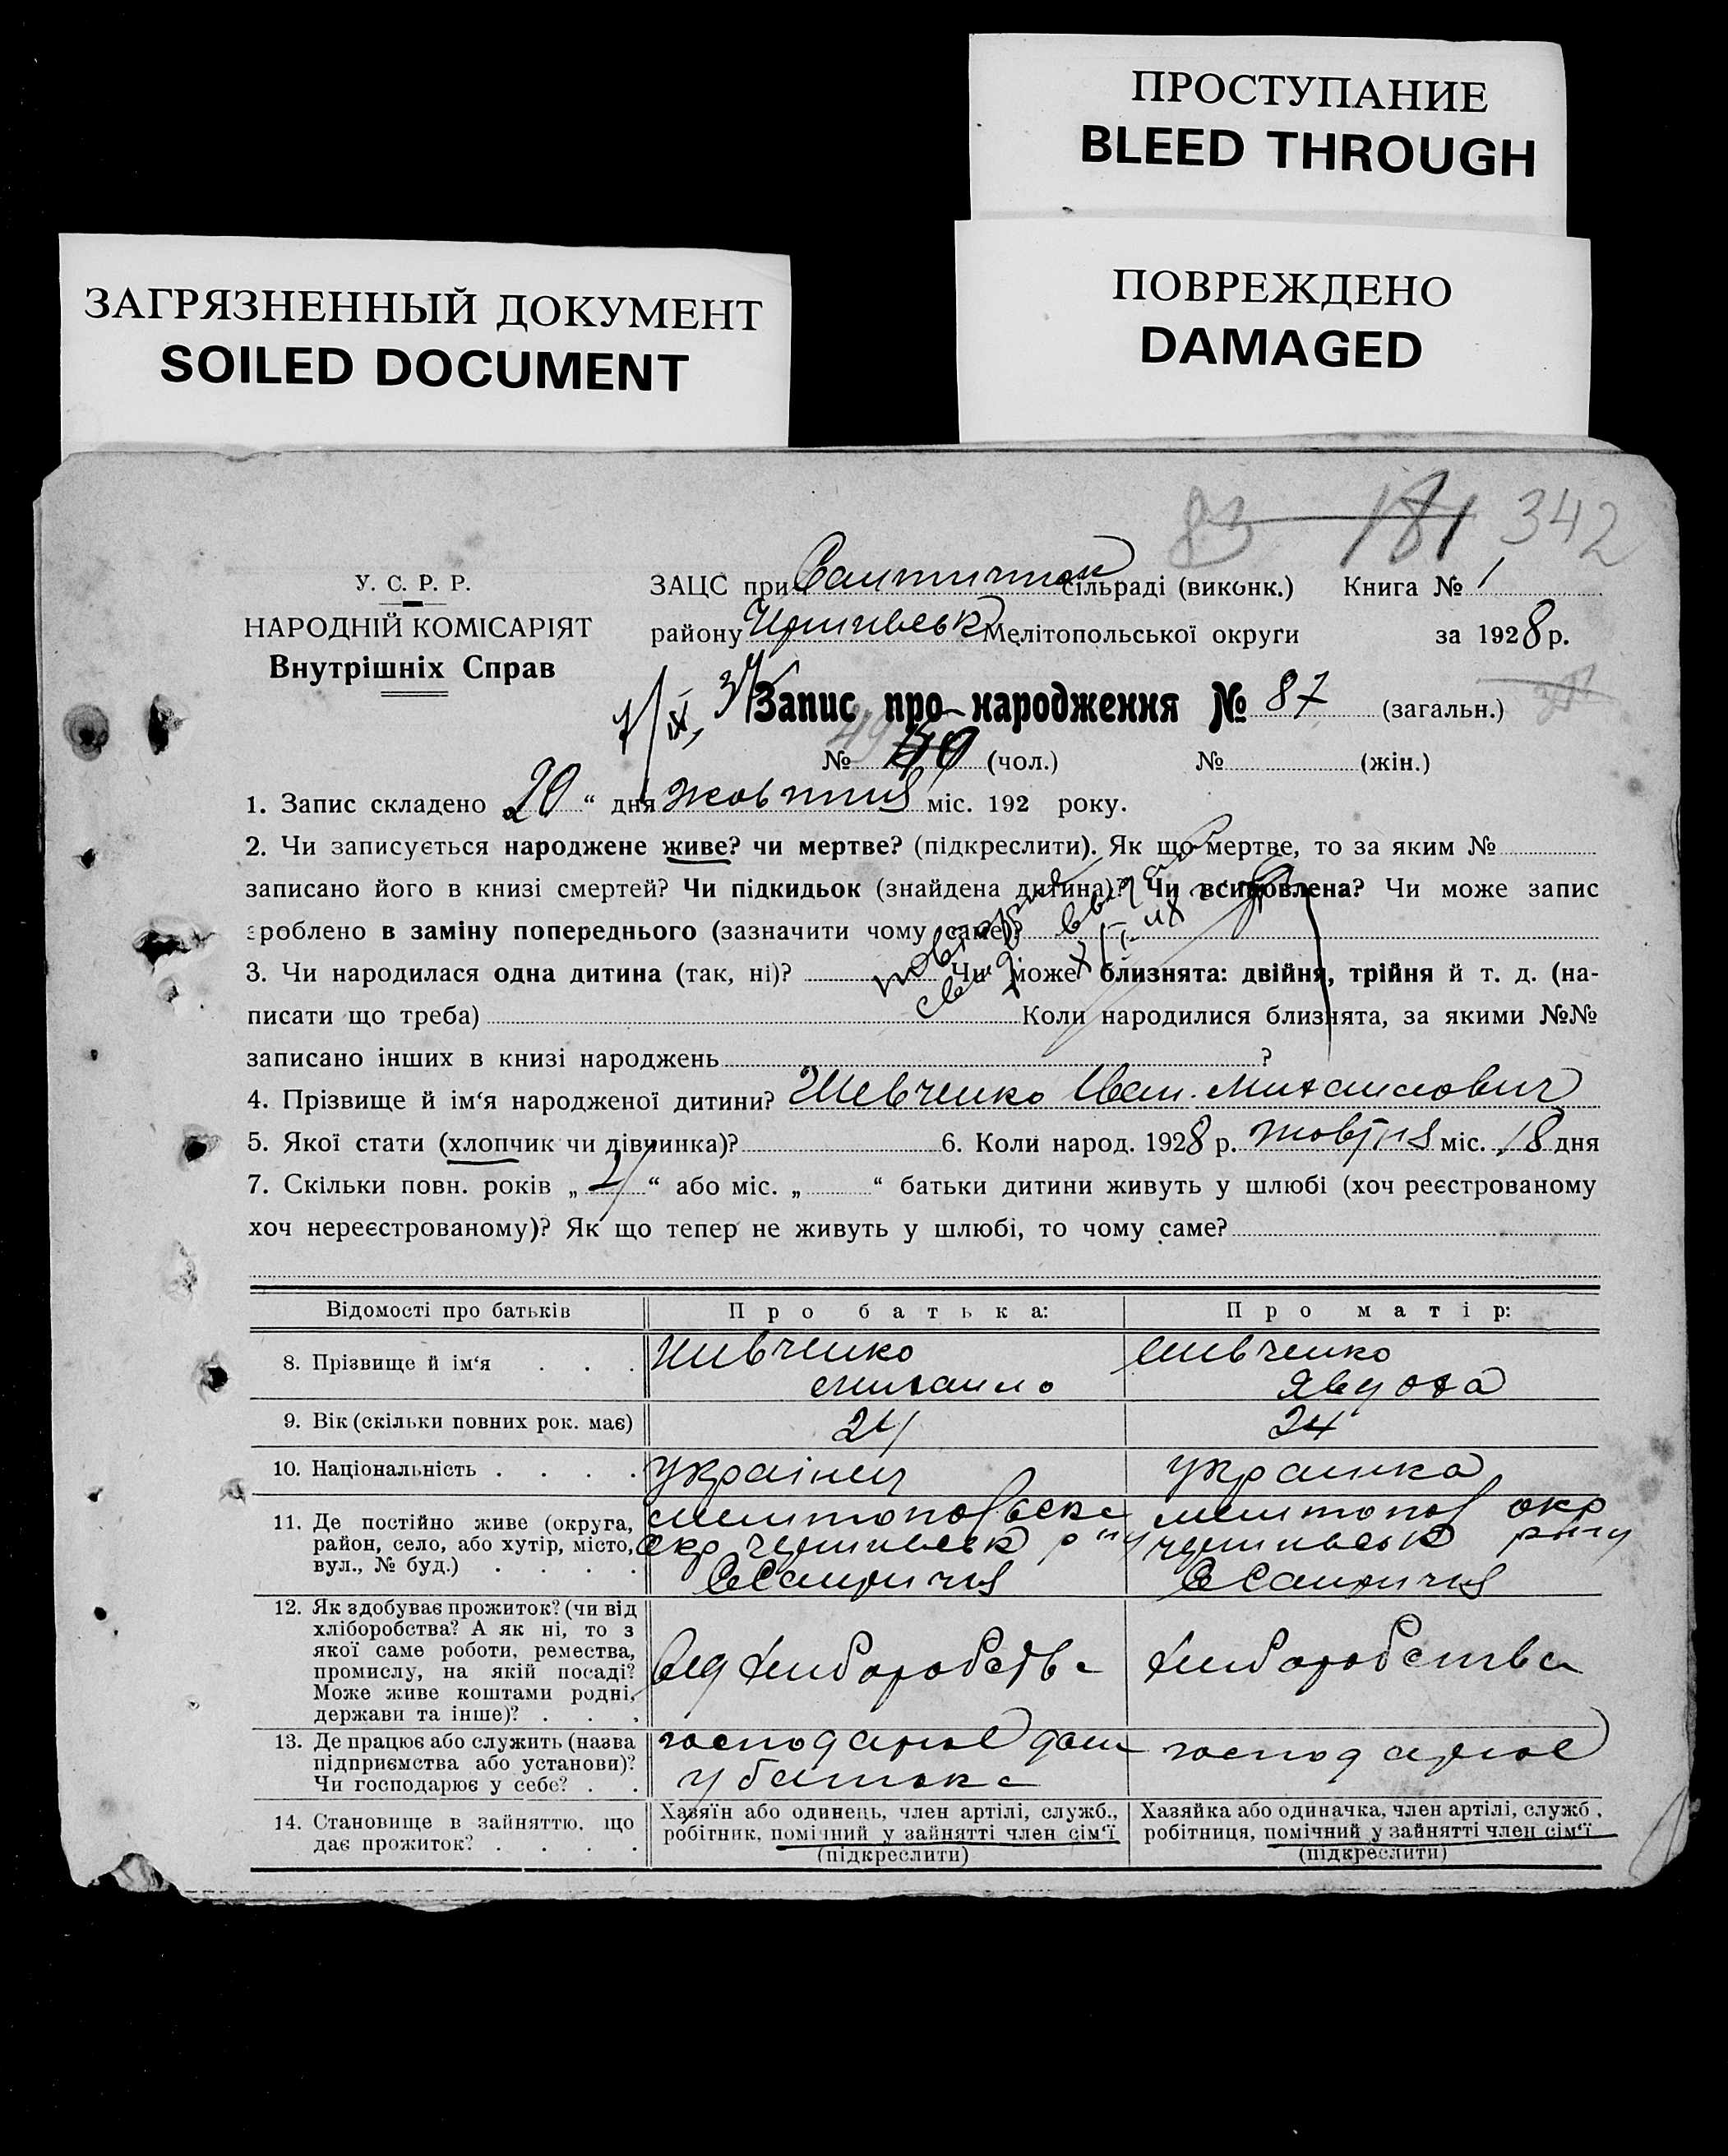 ПРОСТУПАНИЕ
BLEED THROUGH
ЗАГРЯЗНЕННЫЙ ДОКУМЕНТ
SOILED DOCUMENT
ПОВРЕЖДЕНО
DAMAGED
83 181 342
У. С. Р. Р.
НАРОДНІЙ КОМІСАРІЯТ
Внутрішніх Справ
ЗАЦС при сільраді (виконк.) Книга № 1
району Мелітопольської округи за 1928 р.
Запис про народження № 87 (загальн.)
№ 49 (чол.) № (жін.)
1. Запис складено „20“ дня жовтня міс. 192 року.
2. Чи записується народжене живе? чи мертве? (підкреслити). Як що мертве, то за яким №
записано його в книзі смертей? Чи підкидьок (знайдена дитина)? Чи всиновлена? Чи може запис
зроблено в заміну попереднього (зазначити чому саме)?
3. Чи народилася одна дитина (так, ні)? Чи може близнята: двійня, трійня й т. д. (на-
писати що треба) Коли народилися близнята, за якими №№
записано інших в книзі народжень ?
4. Прізвище й ім‘я народженої дитини? Шевченко Іван Михайлович
5. Якої стати (хлопчик чи дівчинка)? 6. Коли народ. 1928 р. жовтня міс. 18 дня
7. Скільки повн. років „ “ або міс. „ “ батьки дитини живуть у шлюбі (хоч реєстрованому
хоч нереєстрованому)? Як що тепер не живуть у шлюбі, то чому саме?
Відомості про батьків Про батька: Про матір:
8. Прізвище й ім‘я . . . Шивченко Михаило Шивченко Явдоха
9. Вік (скільки повних рок. має) 24 24
10. Національність . . . . українец украинка
11. Де постійно живе (округа,
район, село, або хутір, місто,
вул., № буд.) . . . .
12. Як здобуває прожиток? (чи від
хліборобства? А як ні, то з
якої саме роботи, ремества,
промислу, на якій посаді?
Може живе коштами родні,
держави та інше)? . . .
від хлиборобства хлиборобства
13. Де працює або служить (назва
підприємства або установи)?
Чи господарює у себе? . .
господарює
у батька
господарює
14. Становище в зайняттю, що
дає прожиток? . . . .
Хазяїн або одинець, член артілі, служб.,
робітник, помічний у зайнятті член сім‘ї
(підкреслити)
Хазяйка або одиначка, член артілі, служб.,
робітниця, помічний у зайнятті член сім‘ї
(підкреслити)